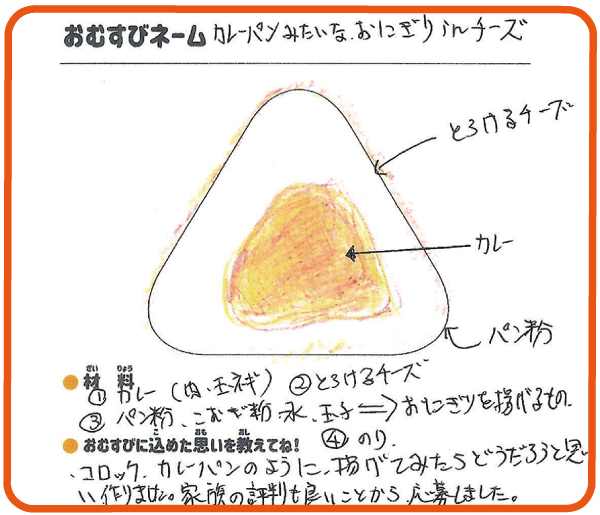 おむすびネーム カレーパンみたいな、おにぎりinチーズ
とろけるチーズ
カレー
パン粉
ざい りょう
材料
① カレー (肉、玉ネギ) ②とろけるチーズ
③ パン粉、こむぎ粉、水、玉子⇒おにぎりを揚げるもの。
④ のり、
こ おも おし
おむすびに込めた思いを教えてね!
・コロッケ、カレーパンのように、揚げてみたらどうだろうと思
い作りました。家族の評判も良いことから、応募しました。